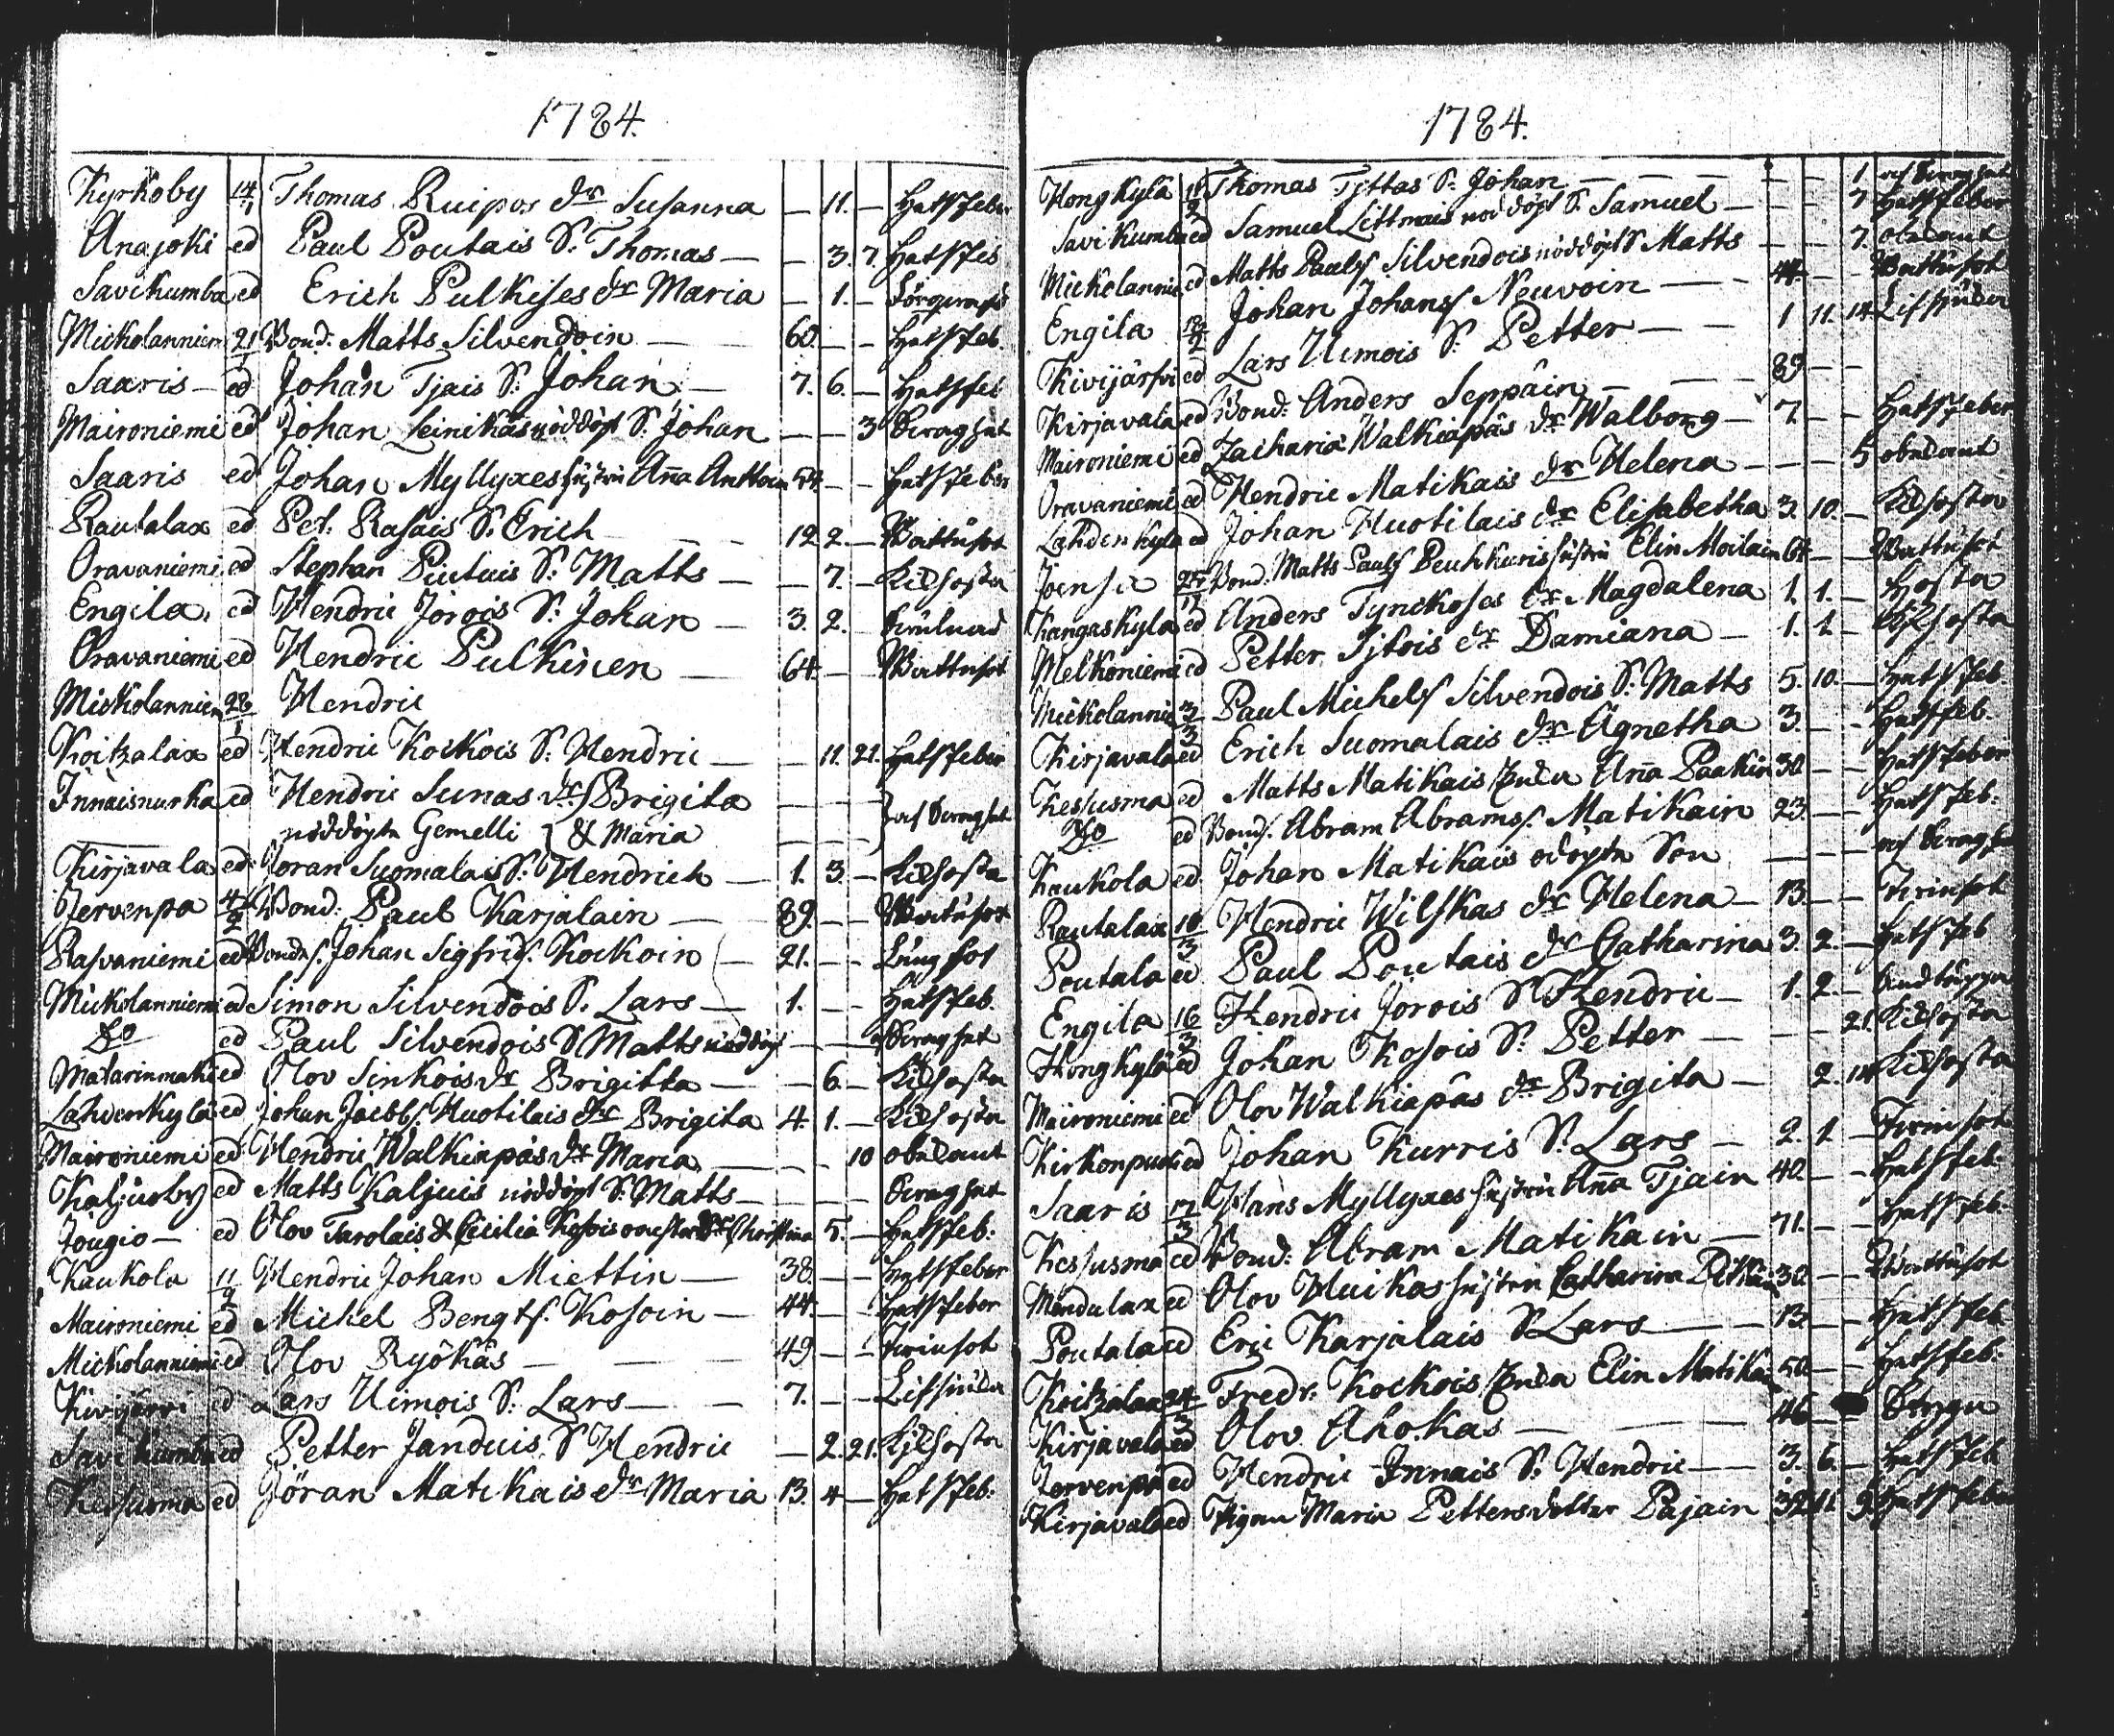 1784.
Kyrkoby 14/1 Thomas Ruipos dr Susanna — 11. — Hetsfeber
Anajoki ed Paul Poutais S. Thomas — — 3. 7. Hetsfeb
Savikumba ed Erich Pulkises dr Maria — 1. —
Mickolanniem 21/1 Bond. Matts Silvendoin — 60. — — Hetsfeb
Saaris — ed Johan Tjais S. Johan — 7. 6. — Hetsfeb
Maironiemi ed Johan Leinikas nöddöpt S. Johan — — 3
Saaris ed Johan Myllyxes hustru Aña Anttoin 54. — — Hetsfeber
Rautalax ed Pet. Rasais S. Erich — — 12 2. — Wattusot
Oravaniemi ed Stephan Piutuis S. Matts — — 7. — Kikhosta
Engila ed Hendric Jorois S. Johan — 3. 2. —
Oravaniemi ed Hendric Pulkinen — 64. — — Wattusot
Mickolanniem 28/1 Hendric
Koitzalax ed Hendric Kockois S. Hendric — — 11. 21. Hetsfeber
Innaisnurka ed Hendric Sunas dr Brigita — — —
nöddöpta Gemelli & Maria
Kirjavala ed Joran Suomalais S. Hendrich — 1. 3. — Kikhosta
Jervenpa 4/2 Bond: Paul Karjalain — 89. — — Watusot
Rasvaniemi ed Bonds. Johan Sigfrids. Kockoin — 21. — — Lungsot
Mickolanniemi ed Simon Silvendois S. Lars — 1. — — Hetsfeb.
Do ed Paul Silvendois S Matts nöddöpt — — —
Matarinmaki ed Olov Sinkois dr Brigitta — — 6. — Kikhosta
Lahdenkylä ed Johan Jacobs. Huotilais dr Brigita 4. 1. — Kikhosta
Maironiemi ed Hendric Walkiapäs dr Maria — — — 10 obekant
Kaljuсby ed Matts Kaljuis nöddöpt S. Matts — — —
Jougio — ed Olov Tarolais & Cicilia Kosois dr Christina 5. — Hetsfeb:
Kaukola 11/2 Hendric Johan Miettin — 38. — — Hetsfeber
Maironiemi ed Michel Bengts. Kosoin — 44. — — Hetsfeber
Mickolanniemi ed Olov Ryökäs — — — 49 — — Trinsot
Kivijärvi ed Lars Uimois S. Lars — — 7. — —
Savikumbu ed Petter Janduis. S Hendric — 2. 21. Kikhosta
Kessusma ed Jöran Matikais dr Maria 13. 4 — Hetsfeb:
1784.
Hongkylä Thomas Tjttas S. Johan — — — — — 1
Savikumba ed Samuel Littmais nöddöpt S. Samuel — — — 7 Hetsfeber
Mickolannie ed Matts Pauls Silvendois nöddöpt S Matts — — 7. obekant
Engila 12/2 Johan Johans Neuvoin — — 44. — — Wattusot
Kivijärfvi ed Lars Uimois S. Petter — — 1 11. 14
Kirjavala ed Bond: Anders Seppäin — — 89 — —
Maironiemi ed Zacharia Walkiapäs dr Walborg — 7 — — Hetsfeber
Oravaniemi ed Hendric Matikais dr Helena — — — 5 obekant
Lahdenkyla ed Johan Huotilais dr Elisabetha 3. 10. — Kikhosta
Joensu Bond. Matts Pauls Peuhkuris hustru Elin Moilain 64 — — Wattusot
Kangaskyla ed Anders Tynckoses dr Magdalena 1. 1. — Hosta
Melkoniemi ed Petter Ijtois dr Damiana — 1. 1 — Kikhosta
Mickolannie 3/3 Paul Michels Silvendois S. Matts 5. 10. — Hetsfeb.
Kirjavala ed Erich Suomalais dr Agnetha 3. — — Hetsfeb.
Kessusma ed Matts Matikais Enka Aña Paakin 30 — — Hetsfeber
Do ed Bonds. Abram Abrams. Matikain 23. — — Hetsfeb:
Kaukola ed Johan Matikais odöpta Son — — —
Rautalax 10/3 Hendric Wilskas dr Helena — 13. — — Trinsot
Poutala ed Paul Poutais dr Catharina 3. 2. — Hetsfeb
Engila 16/3 Hendric Jorois S Hendric — 1. 2. — Andtäppa
Hongkylä ed Johan Kosois S. Petter — — — 21. Kikhosta
Maironiemi ed Olov Walkiapäs dr Brigita — 2. 14 Kikhosta
Kirkonpuoli ed Johan Kurris S. Lars — 2. 1 — Trinsot
Saaris 17/3 Hans Myllyxes hustru Aña Tjain 40. — — Hetsfeb.
Kessusma ed Bond: Abram Matikain — 71. — — Hetsfeb.
Mendulax ed Olov Huikas hustru Catharina 30. — — Wattusot
Poutala ed Eric Karjalais S Lars — — 13. — — Hetsfeb
Koitzalax 24/3 Fredr. Kockois Enka Elin Matikain 50. — — Hetsfeb:
Kirjavala ed Olov Ahokas — — — 46 —
Jervenpä ed Hendric Innais S. Hendric — 3. 6. — Hetsfeb
Kirjavala ed Pigan Maria Pettersdotter Pajain 32 11 9. Hetsfeber